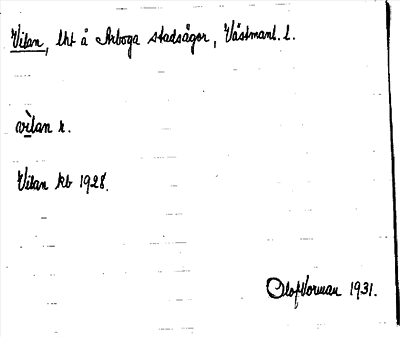 Vilan, lht å Arboga stadsägor, Västmanl. l.
avìlan r.
Vilan kb 1928.
Olof Vorman 1931.